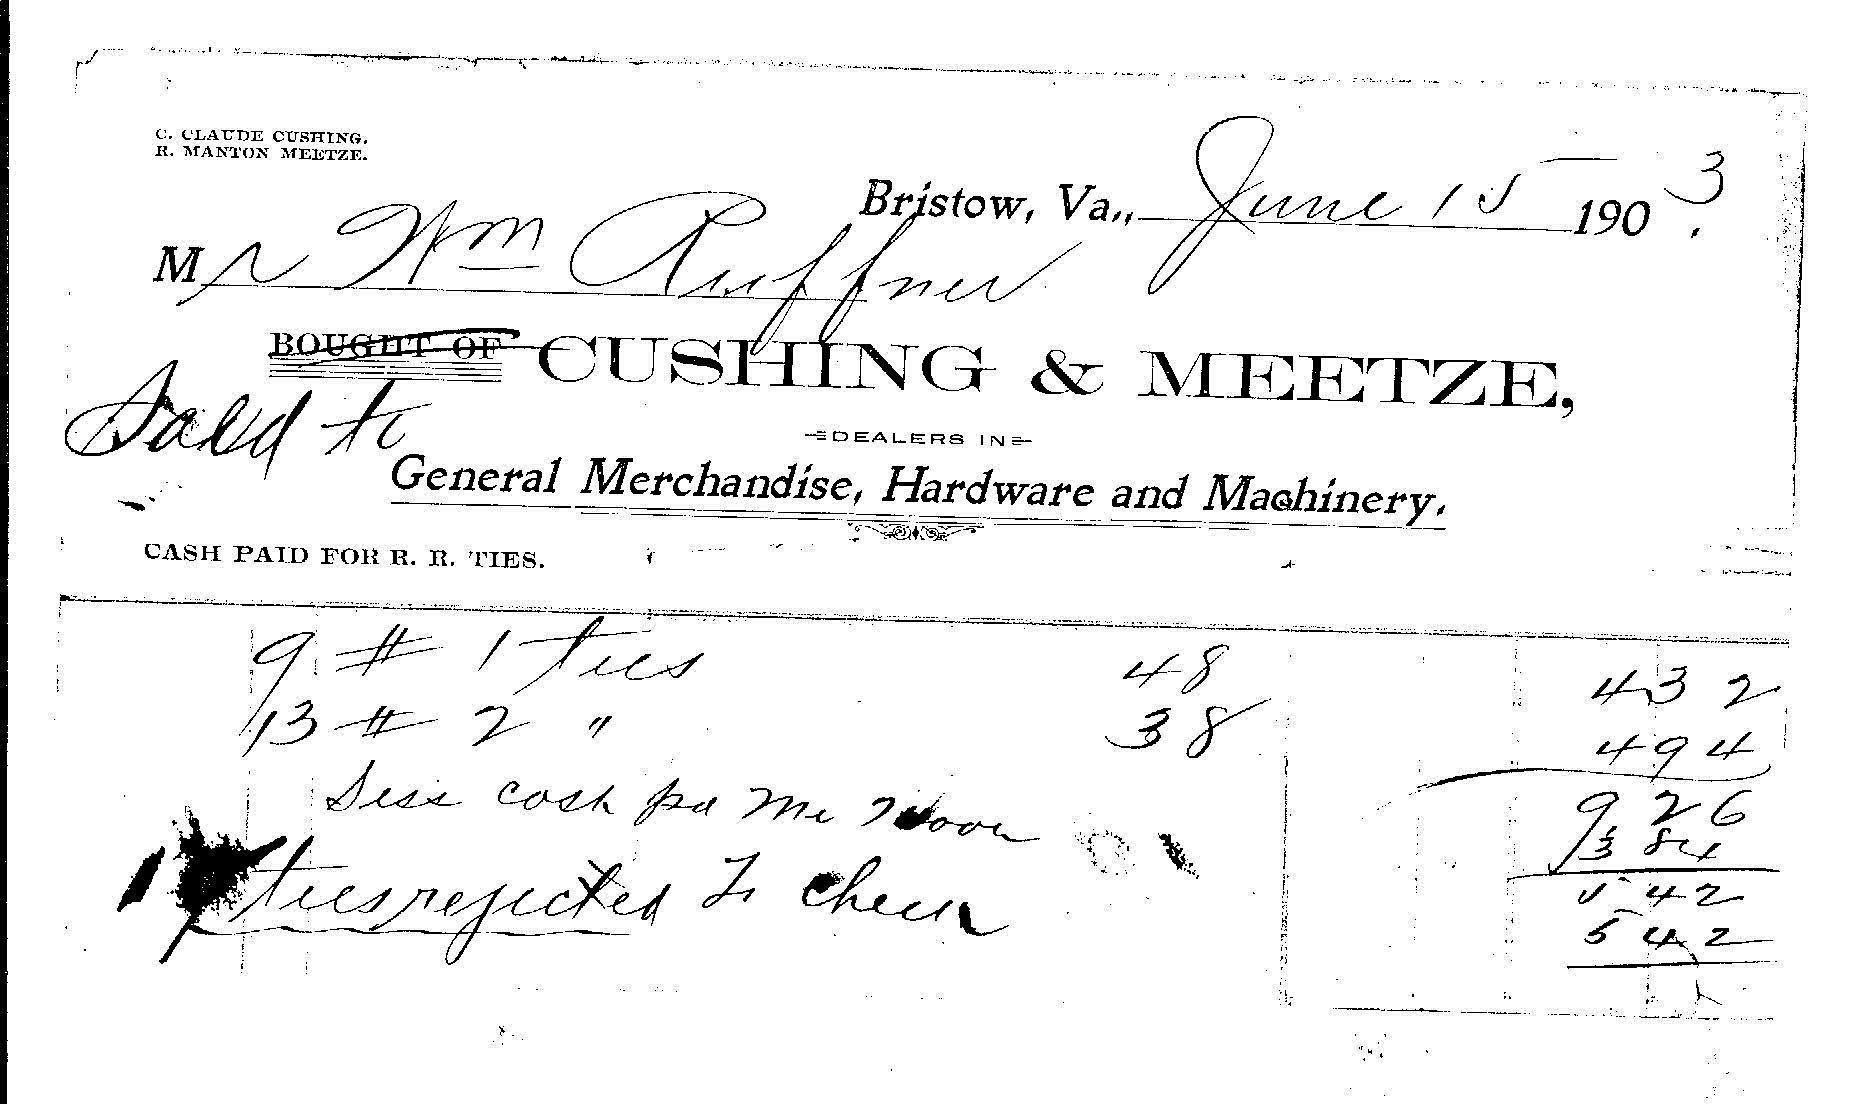 C. CLAUDE CUSHING.
R. MANTON MEETZE.
Bristow, Va., June 15 1903.
Mr Wm Ruffner
BOUGHT OF CUSHING & MEETZE,
Sold to
DEALERS IN
General Merchandise, Hardware and Machinery.
CASH PAID FOR R. R. TIES.
9 # 1 ties 48 4 32
13 # 2 " 38 4 94
9 26
Less cash pd Mr 3 84
5 42
ties rejected To check 5 42